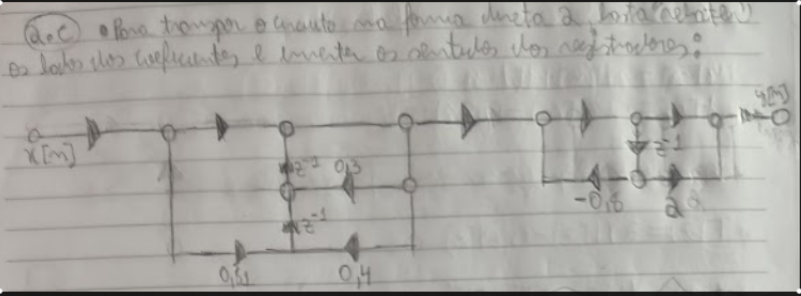 2.c) • Para transpor o circuito na forma direta 2, basta rebater
os lados dos coeficientes e inverter os sentidos dos registradores:
x[n]
y[n]
z⁻¹
0,3
z⁻¹
z⁻¹
-0,8
2
0,81
0,4